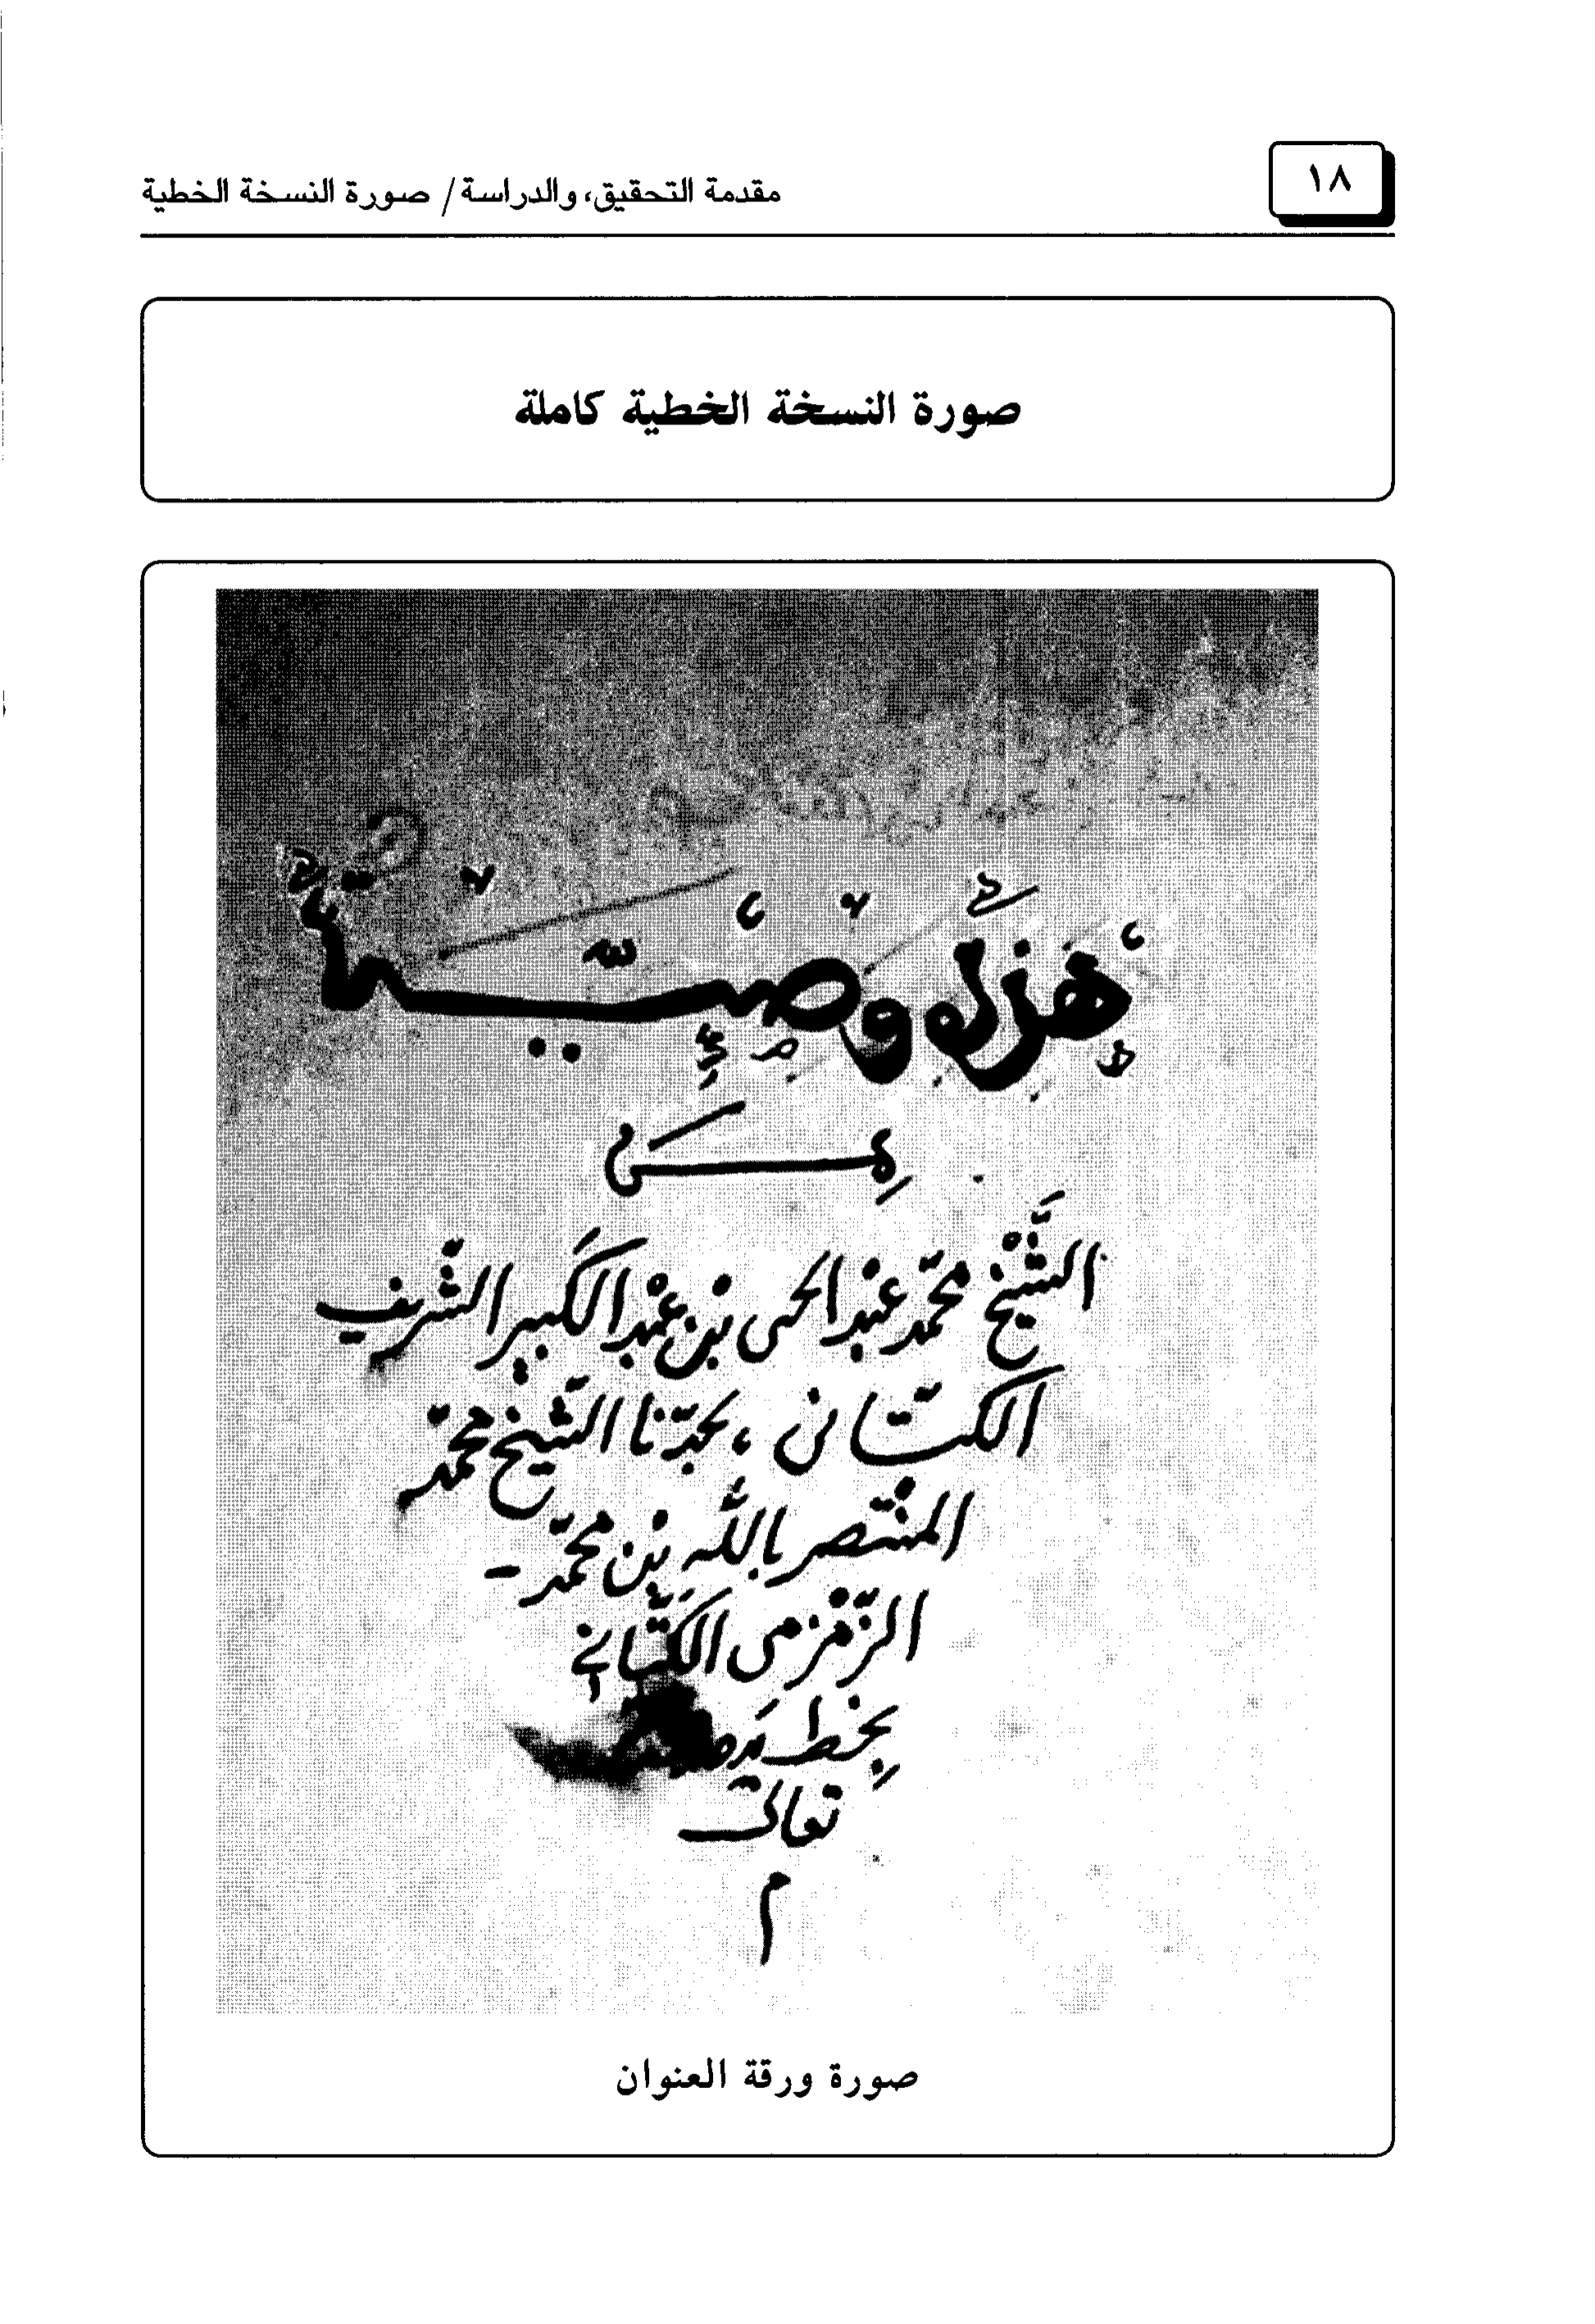 ١٨
مقدمة التحقيق، والدراسة / صورة النسخة الخطية
صورة النسخة الخطية كاملة
هَذِهِ وَصِيَّةٌ
مِن
الشَّيْخ محمّد عَبْد الحي بْن عَبْد الكَبير الشّريف
الكتّاني، لجدّنا الشّيخ محمّد
المنْتصر باللّه بْن محمّد -
الزّمْزمي الكَتّاني
بِخط يَده
تعالى
م
صورة ورقة العنوان